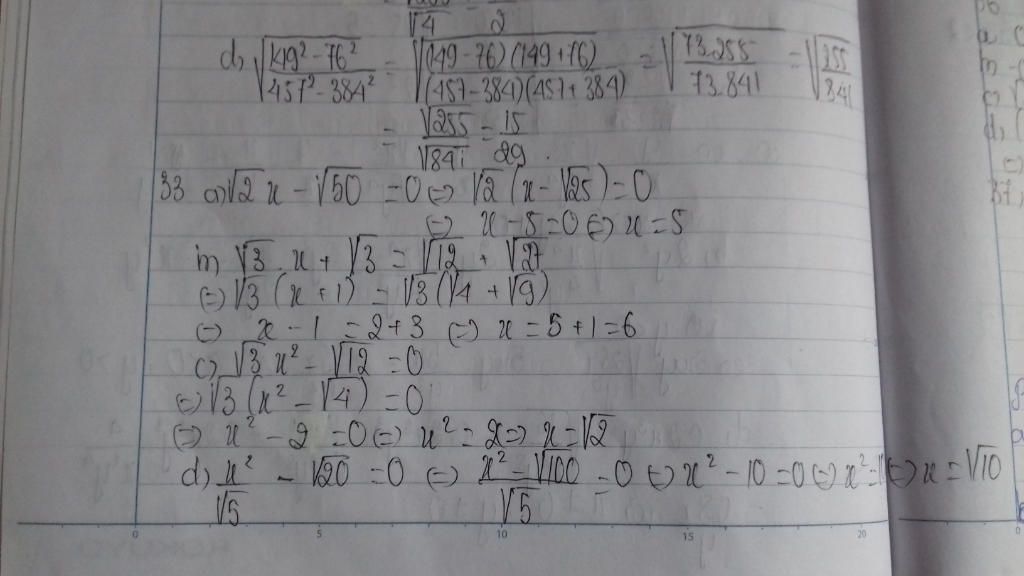 √4 2
d, √(149² - 76² / 457² - 384²) = √((149-76)(149+76) / (457-384)(457+384)) = √(73.255 / 73.841) = √(255 / 841)
= √255 / √841 = 15 / 29 .
33 a) √2 x - √50 = 0 (=) √2 (x - √25) = 0
(=) x - 5 = 0 (=) x = 5
b) √3 . x + √3 = √12 + √27
(=) √3 (x + 1) = √3 (√4 + √9)
(=) x - 1 = 2 + 3 (=) x = 5 + 1 = 6
c) √3 x² - √12 = 0
(=) √3 (x² - √4) = 0
(=) x² - 2 = 0 (=) x² = 2 => x = √2
d) x² / √5 - √20 = 0 (=) x² - √100 / √5 = 0 (=) x² - 10 = 0 (=) x² = 1 (=) x = √10
0 5 10 15 20